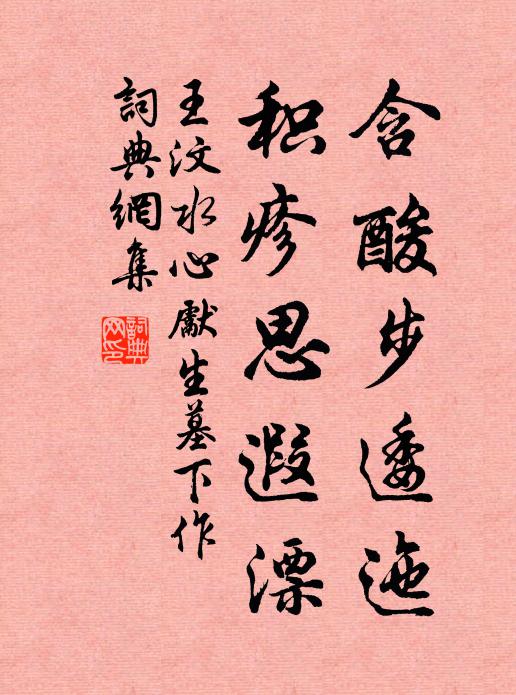 含酸步逶迤
积疹思遐漂
王汶水心獻生墓下作
詞典網集
詞典网印